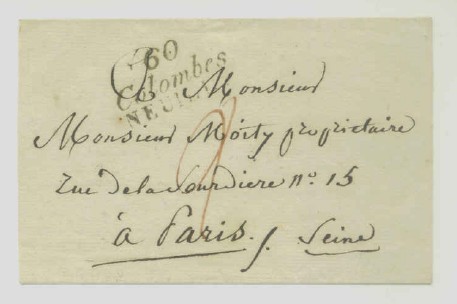 60
Colombes
A Monsieur
Monsieur Moity proprietaire
rue de la Sourdiere n° 15
à Paris. / Seine